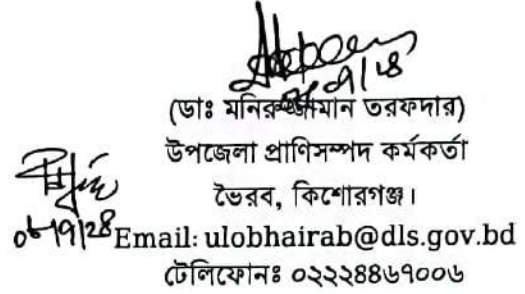 (ডাঃ মনিরুজ্জামান তরফদার)
উপজেলা প্রাণিসম্পদ কর্মকর্তা
ভৈরব, কিশোরগঞ্জ।
Email: ulobhairab@dls.gov.bd
টেলিফোনঃ ০২২২৪৪৬৭০০৬